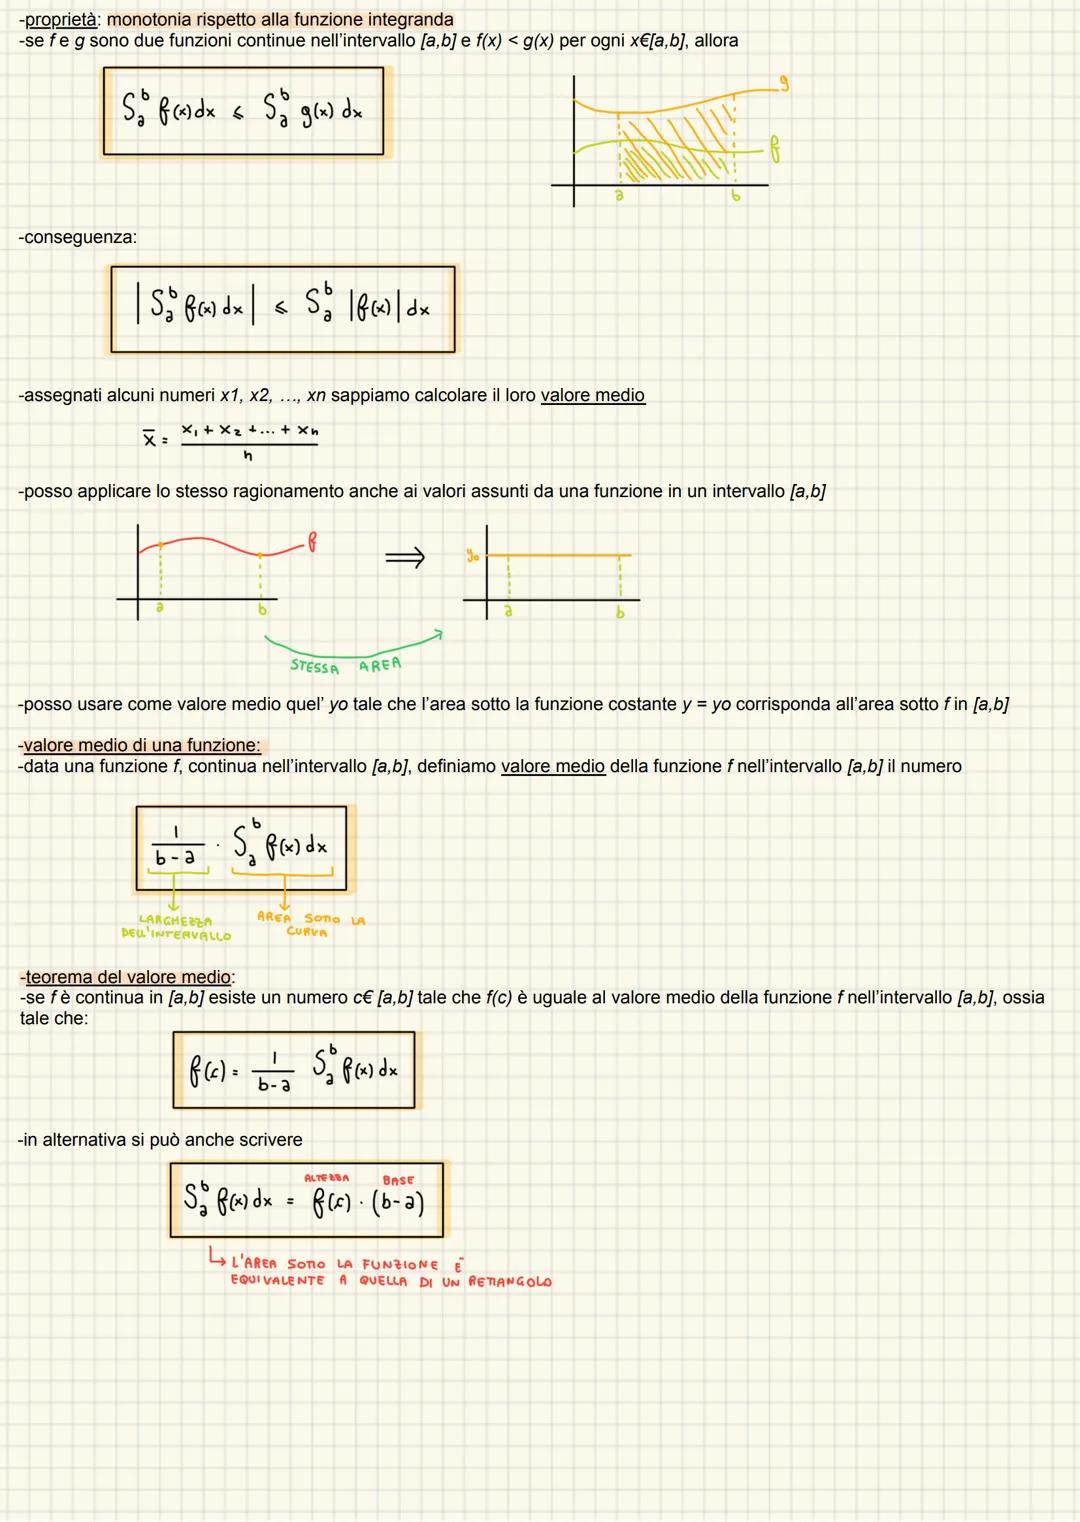 -proprietà: monotonia rispetto alla funzione integranda
-se f e g sono due funzioni continue nell'intervallo [a,b] e f(x) < g(x) per ogni x€[a,b], allora
S_a^b f(x) dx ⩽ S_a^b g(x) dx
g
f
a b
-conseguenza:
| S_a^b f(x) dx | ⩽ S_a^b |f(x)| dx
-assegnati alcuni numeri x1, x2, …, xn sappiamo calcolare il loro valore medio
x̅ = (x₁ + x₂ + ... + xn) / n
-posso applicare lo stesso ragionamento anche ai valori assunti da una funzione in un intervallo [a,b]
f ⟹ y₀
a b a b
STESSA AREA
-posso usare come valore medio quel' yo tale che l'area sotto la funzione costante y = yo corrisponda all'area sotto f in [a,b]
-valore medio di una funzione:
-data una funzione f, continua nell'intervallo [a,b], definiamo valore medio della funzione f nell'intervallo [a,b] il numero
1/(b-a) · S_a^b f(x) dx
LARGHEZZA DELL'INTERVALLO
AREA SOTTO LA CURVA
-teorema del valore medio:
-se f è continua in [a,b] esiste un numero c€ [a,b] tale che f(c) è uguale al valore medio della funzione f nell'intervallo [a,b], ossia
tale che:
f(c) = 1/(b-a) S_a^b f(x) dx
-in alternativa si può anche scrivere
ALTEZZA BASE
S_a^b f(x) dx = f(c) · (b-a)
↳ L'AREA SOTTO LA FUNZIONE È
EQUIVALENTE A QUELLA DI UN RETTANGOLO